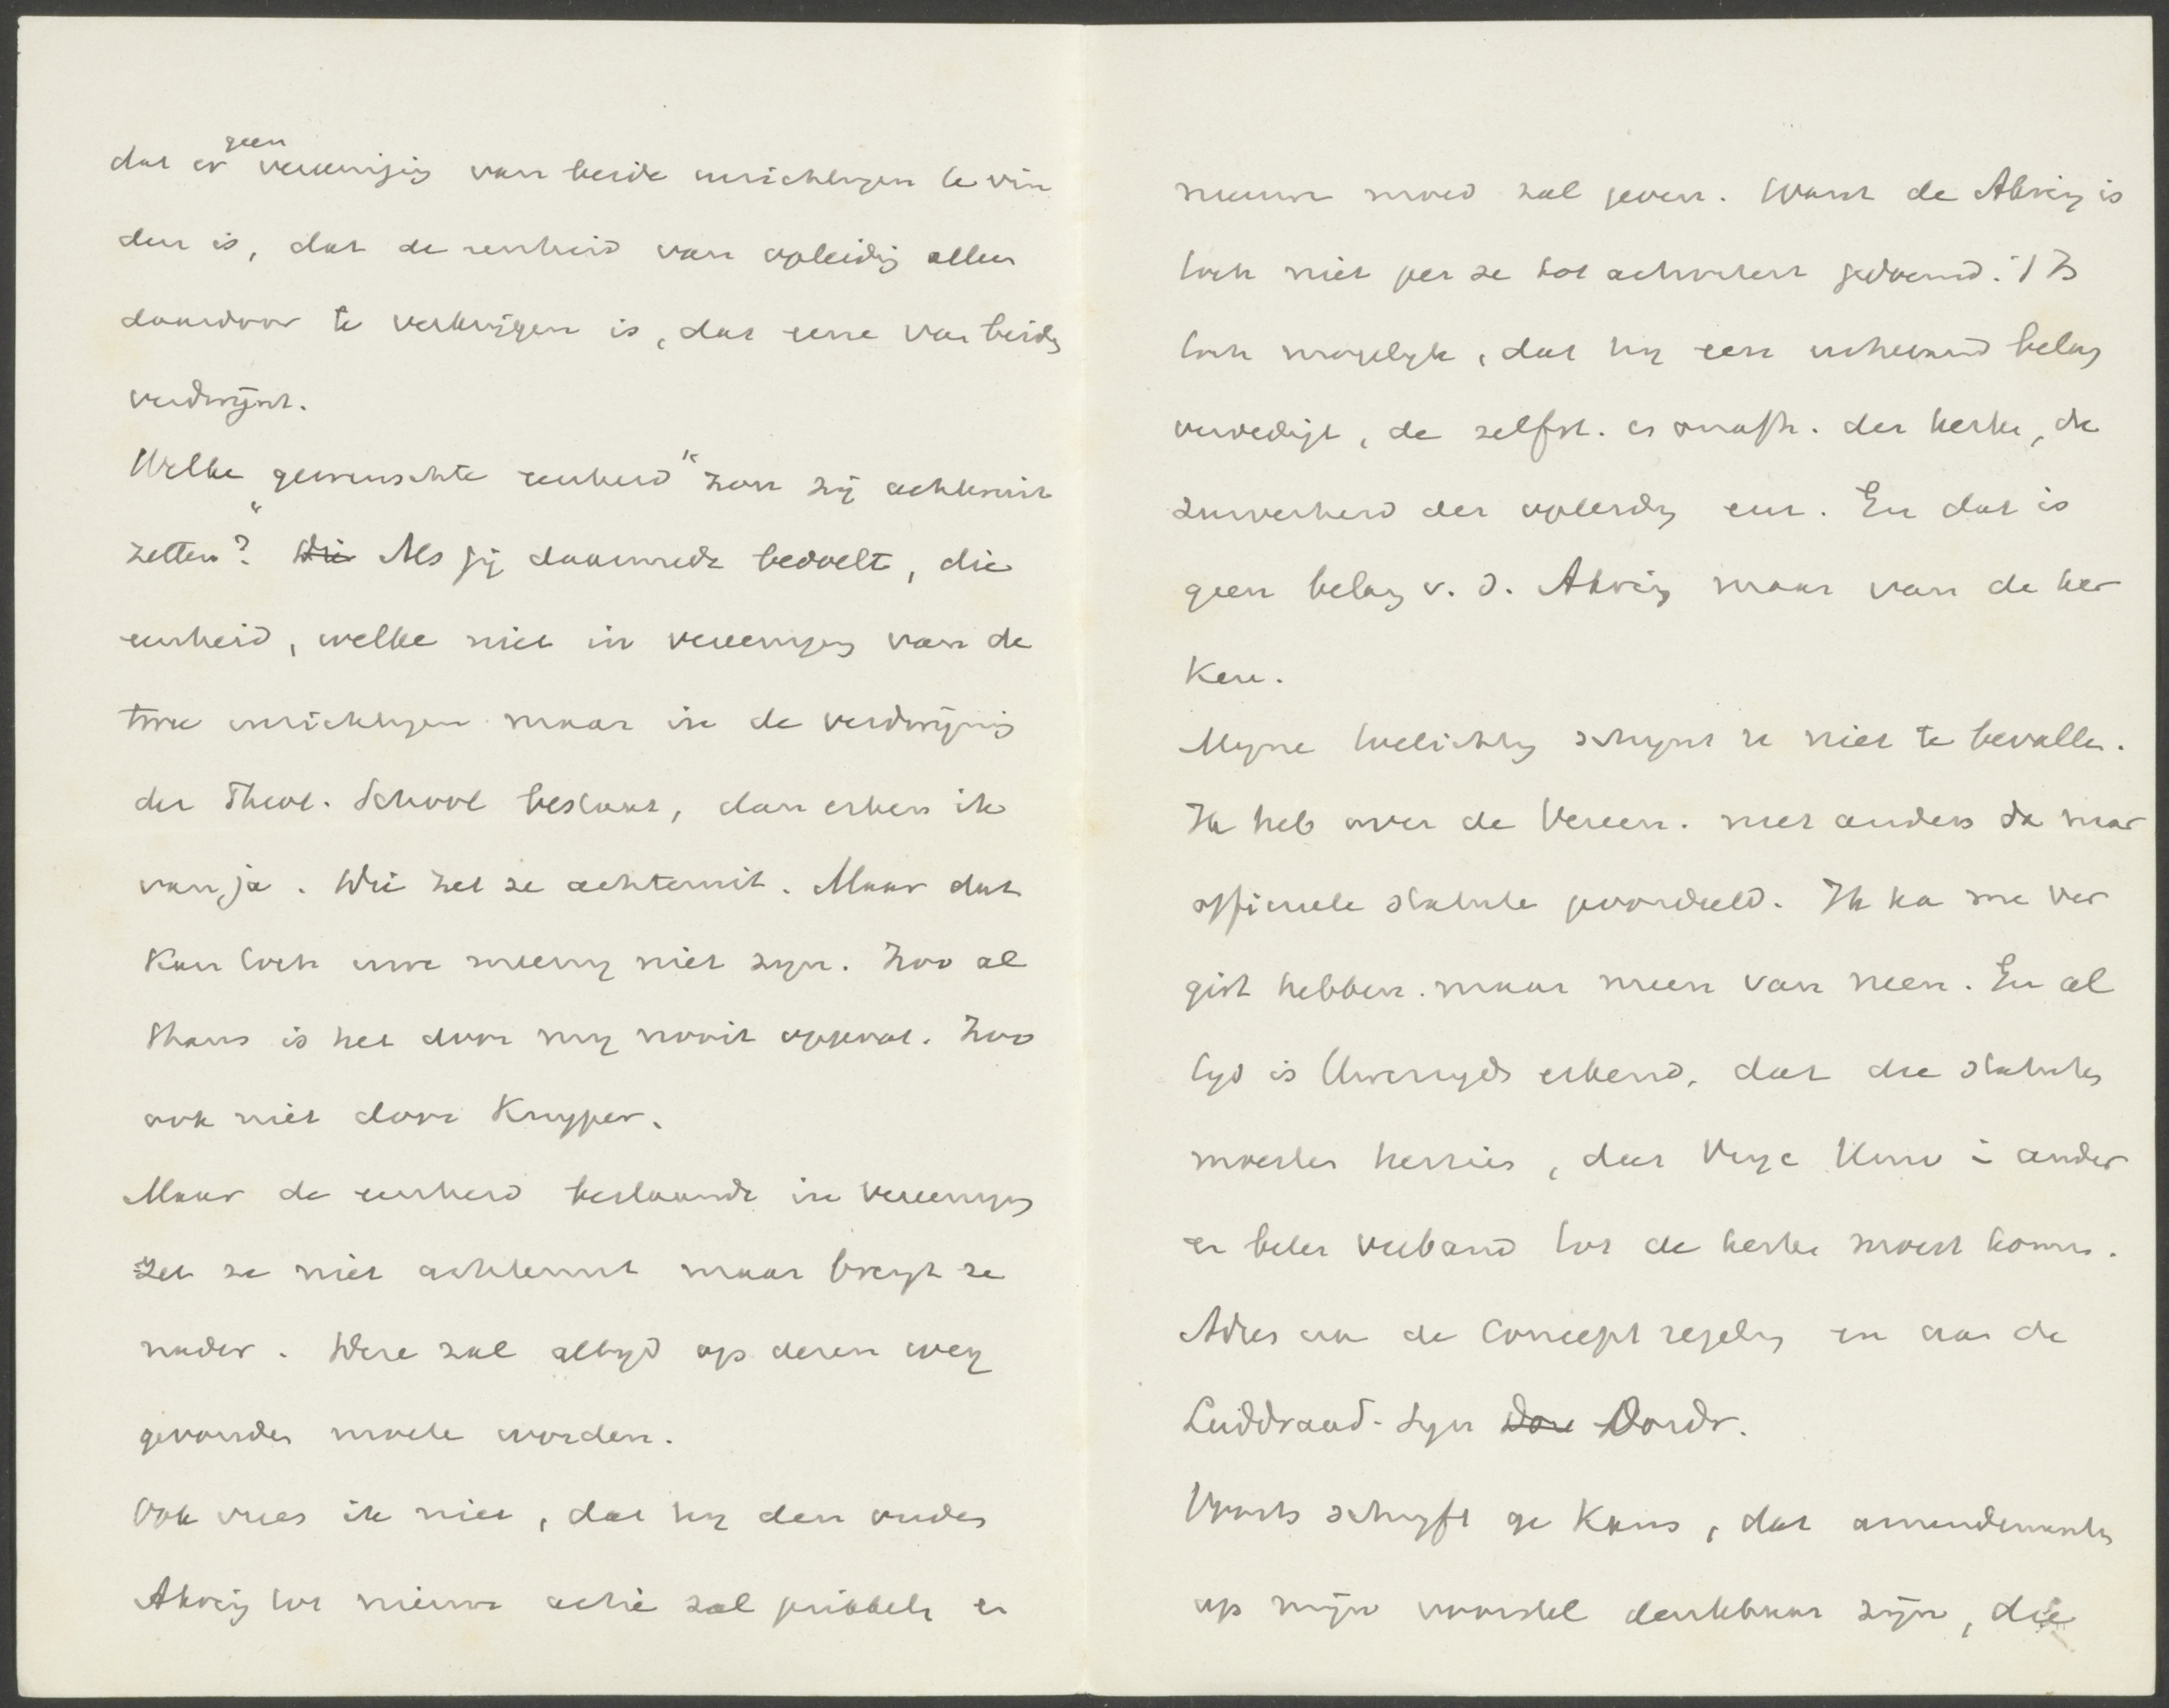 dat er geen vereeniging van beide inrichtingen te vin
den is, dat de eenheid van opleiding alleen
daardoor te verkrijgen is, dat eene van beiden
verdwijnt.
Welke "gewenschte eenheid" zou zij achteruit
zetten? Wie Als gij daarmede bedoelt, die
eenheid, welke niet in vereeniging van de
twee inrichtingen maar in de verdwijning
der Theol. School bestaat, dan erken ik
van ja. Die zet ze achteruit. Maar dat
kan toch uwe meening niet zijn. Zoo al
thans is het door mij nooit opgevat. Zoo
ook niet door Kuyper.
Maar de eenheid bestaande in vereeniging
zet ze niet achteruit maar brengt ze
nader. Deze zal altijd op dezen weg
gevonden moeten worden.
Ook vrees ik niet, dat hij den ouden
Abrig tot nieuwe actie zal prikkelen en
nieuwe moed zal geven. Want de is
toch niet per se tot gedoemd. 't Is
toch mogelijk, dat hij een belang
verdedigt, de zelfst. en onafh. der kerken, de
zuiverheid der opleiding enz. En dat is
geen belang v. d. maar van de ker
ken.
Mijne toelichting schijnt u niet te bevallen.
Ik heb over de Vereen. niet anders dan naar
officieele statuten geoordeeld. Ik kan me ver
gist hebben. maar meen van neen. En al
tijd is erkend, dat die statuten
moesten herzien, dat Vrije Univ in ander
en beter verband tot de kerken moest komen.
Adres aan de Concept regeling en aan de
Leiddraad-Syn Dor Dordr.
Voorts schrijft ge Kans, dat amendementen
op mijn voorstel denkbaar zijn, die